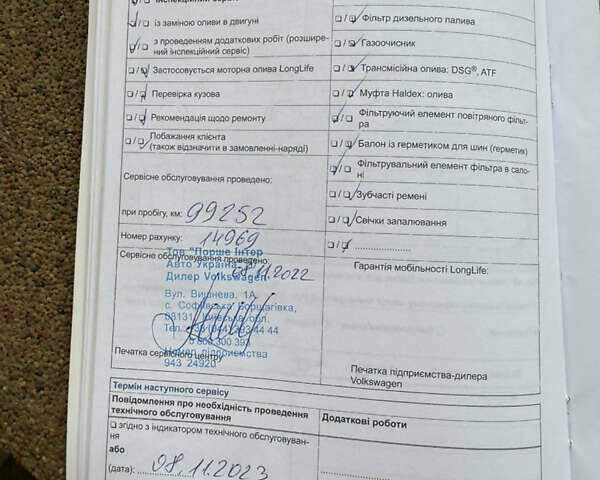 Інспекційний сервіс
☐/☐ із заміною оливи в двигуні
☐/☐ з проведенням додаткових робіт (розшире-
ний інспекційний сервіс)
☐/☐ Застосовується моторна олива LongLife
☐/☐ Перевірка кузова
☐/☐ Рекомендація щодо ремонту
☐/☐ Побажання клієнта
(також відзначити в замовленні-наряді)
Сервісне обслуговування проведено:
при пробігу, км: 99252
Номер рахунку: 14969
Сервісне обслуговування проведено:
08.11.2022
Тов "Порше Інтер
Авто Україна"
Дилер Volkswagen
Вул. Вишнева, 1А
с. Софіївська Борщагівка,
08131, Київська обл.
Тел.
0 800 300 393
Номер підприємства
943 24920
Печатка сервісного центру
☐/☐ Фільтр дизельного палива
☐/☐ Газоочисник
☐/☐ Трансмісійна олива: DSG®, ATF
☐/☐ Муфта Haldex: олива
☐/☐ Фільтруючий елемент повітряного фільт-
ра
☐/☐ Балон із герметиком для шин (герметик)
☐/☐ Фільтрувальний елемент фільтра в сало-
ні
☐/☐ Зубчасті ремені
☐/☐ Свічки запалювання
☐/☐ ......................
Гарантія мобільності LongLife:
Печатка підприємства-дилера
Volkswagen
Термін наступного сервісу
Повідомлення про необхідність проведення
технічного обслуговування
☐ згідно з індикатором технічного обслуговуван-
ня
або
(дата): 08.11.2023
Додаткові роботи